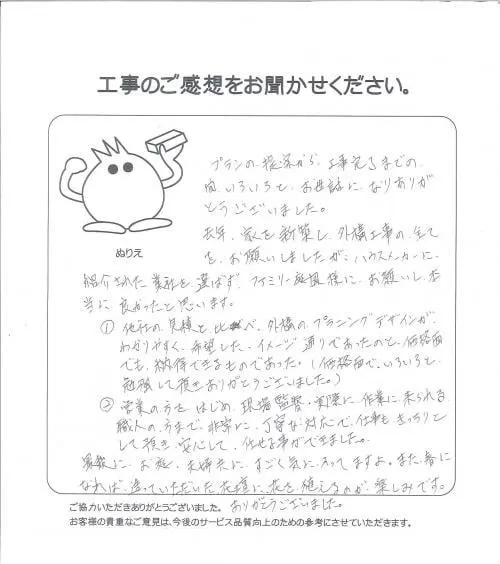 工事のご感想をお聞かせください。
ぬりえ
プランの提案から、工事完了までの
間、いろいろと、お世話に、なりありが
とうございました。
去年、家を新築し、外構工事の全て
を、お願いしましたが、ハウスメーカーに、
紹介された業社を選ばず、ファミリー庭園様に、お願いし、本
当に良かったと思います。
① 他社の見積と比べ、外構のプランニングデザインが、
わかりやすく、希望した、イメージ通りであったのと、価格面
でも、納得できるものであった。(価格面で、いろいろと、
勉強して頂きありがとうございました。)
② 営業の方を、はじめ、現場監督・実際に作業に来られる
職人の方まで、非常に、丁寧な対応で、仕事も、きっちりと
して頂き、安心して、任せる事ができました。
最後に、お庭、夫婦共に、すごく気に入ってますよ。また、春に
なれば、造っていただいた花壇に、花を植えるのが、楽しみです。
ありがとうございました。
ご協力いただきありがとうございました。
お客様の貴重なご意見は、今後のサービス品質向上のための参考にさせていただきます。